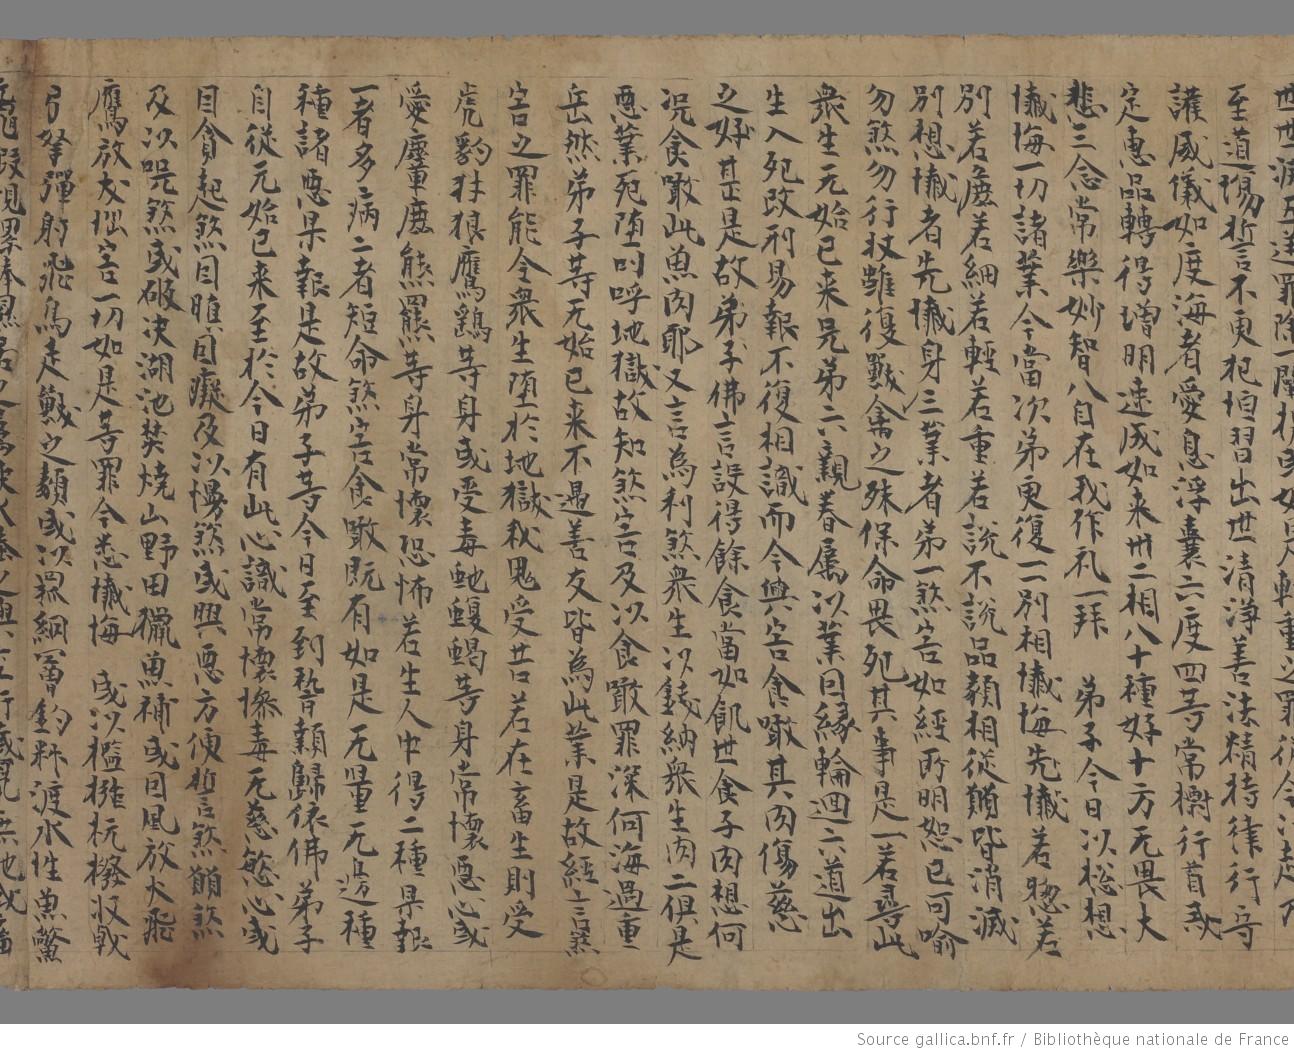 至道場誓不更犯恒習出世清淨善法精持律行守
護威儀如度海者愛惜浮囊六度四等常摽行首戒
定惠品轉得增明速成如来卅二相八十種好十方无畏大
悲三念常樂妙智八自在我作礼一拜 弟子今日以捴想
懺悔一切諸業今當次弟更復一一別相懺悔先懺若惣若
別若麁若細若輕若重若說不說品類相從願皆消滅
別想懺者先懺身三業者弟一煞害如經所明恕己可喻
勿煞勿行杖雖復獸禽之殊保命畏死其事是一若尋此
衆生元始已来兄弟六親眷属以業因緣輪迴六道出
生入死改形易報不復相識而今興害食噉其肉傷慈
之好甚是故弟子佛言設得餘食當如飢世食子肉想何
況食噉此魚肉耶又言為利煞衆生以錢納衆生肉二俱是
惡業死堕叫呼地獄故知煞害及以食噉罪深何海過重
岳然弟子等无始已来不遇善友皆為此業是故經言煞
害之罪能令衆生堕於地獄餓鬼受苦若在畜生則受
虎豹犲狼鷹鷂等身或受毒虵蝮蝎等身常懷惡心或
受麞鹿熊羆等身常懷恐怖若生人中得二種果報
一者多病二者短命煞害食噉既有如是无量无邊種
種諸惡果報是故弟子等今日至到稽顙歸依佛弟子
自從元始已来至於今日有此心識常懷慘毒无慈慜心或
因貪起煞因瞋因癡及以慢煞或興惡方便誓煞願煞
及以呪煞或破决湖池焚燒山野田獵魚捕或因風放火飛
鷹放犬惱害一切如是等罪今悉懺悔 或以檻穽杭撥杈戟
弓弩彈射飛鳥走獸之類或以罘網罾釣料漉水性魚鱉